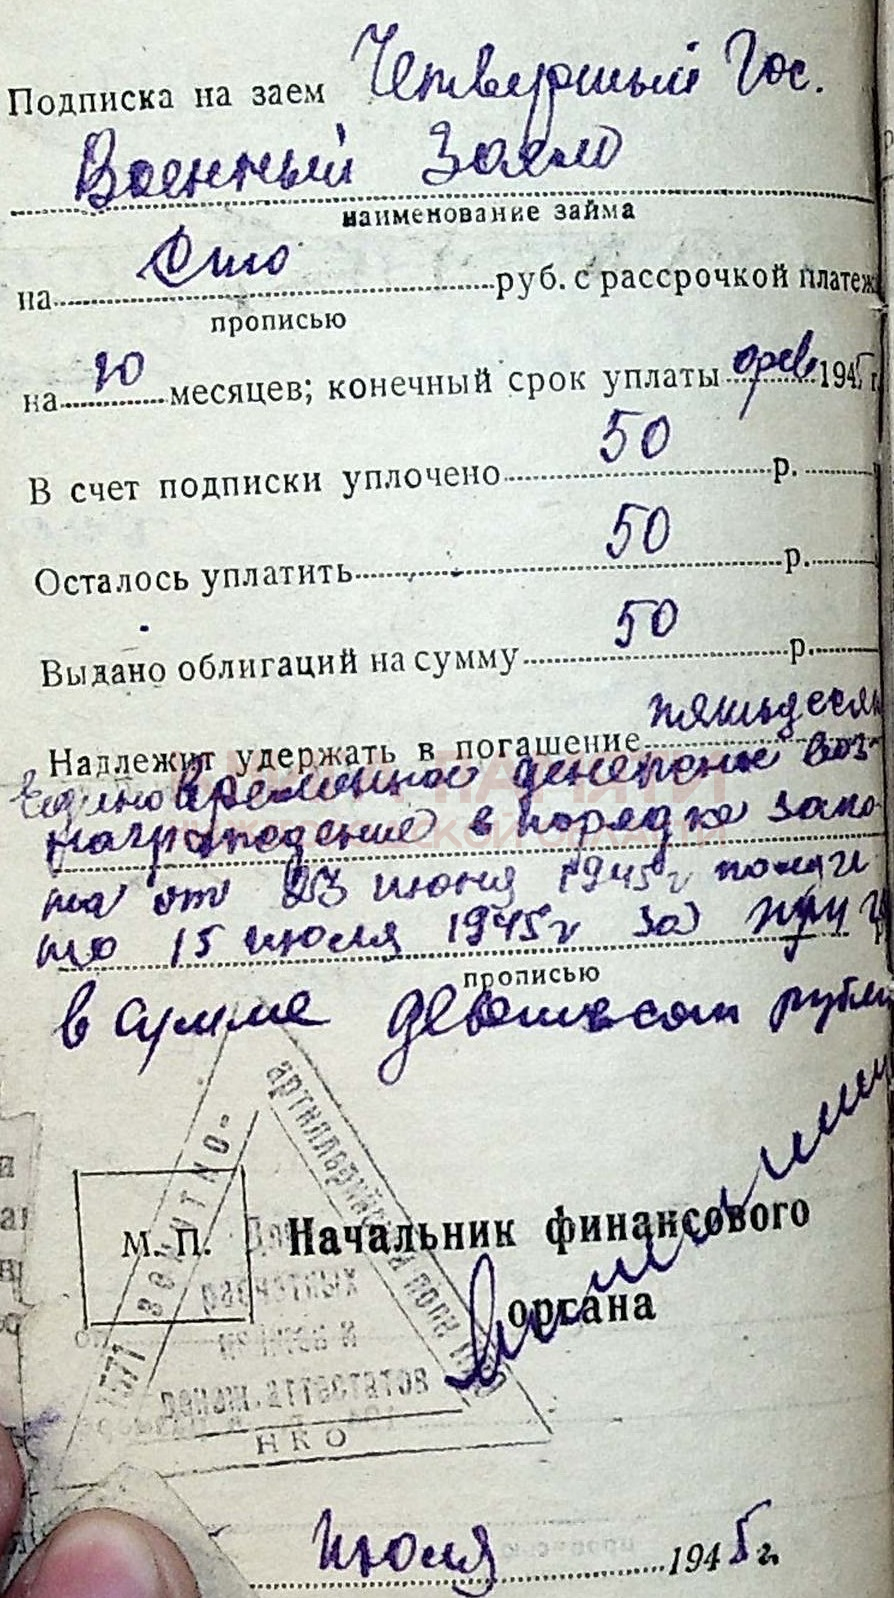 Подписка на заем Четвертый Гос.
Военный Заем
наименование займа
на Сто руб. с рассрочкой платеж
прописью
на 10 месяцев; конечный срок уплаты 1945 г.
В счет подписки уплочено 50 р.
Осталось уплатить 50 р.
Выдано облигаций на сумму 50 р.
Надлежит удержать в погашение пятьдесят
Единовременное денежное воз-
награждение в порядке зако-
на от 23 июня 1945г
15 июля 1945г за три г
прописью
в сумме девятьсот рублей
1571 ЗЕНИТНО-
артиллерийский полк
НКО
М. П.
Начальник финансового
органа
Июля 1945 г.